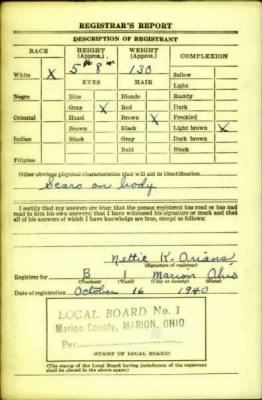 REGISTRAR'S REPORT
DESCRIPTION OF REGISTRANT
RACE HEIGHT (Approx.) WEIGHT (Approx.) COMPLEXION
White X 5 8 130 Sallow
EYES HAIR Light
Negro Blue Blonde Ruddy
Gray X Red Dark
Oriental Hazel Brown X Freckled
Brown Black Light brown X
Indian Black Gray Dark brown
Bald Black
Filipino
Other obvious physical characteristics that will aid in identification
Scars on body
I certify that my answers are true; that the person registered has read or has had
read to him his own answers; that I have witnessed his signature or mark and that
all of his answers of which I have knowledge are true, except as follows:
Nettie K. Orians
(Signature of registrar)
Registrar for B 1 Marion Ohio
(Precinct) (Ward) (City or county) (State)
Date of registration October 16 1940
LOCAL BOARD No. 1
Marion County, MARION, OHIO
Per
(STAMP OF LOCAL BOARD)
(The stamp of the Local Board having jurisdiction of the registrant
shall be placed in the above space.)